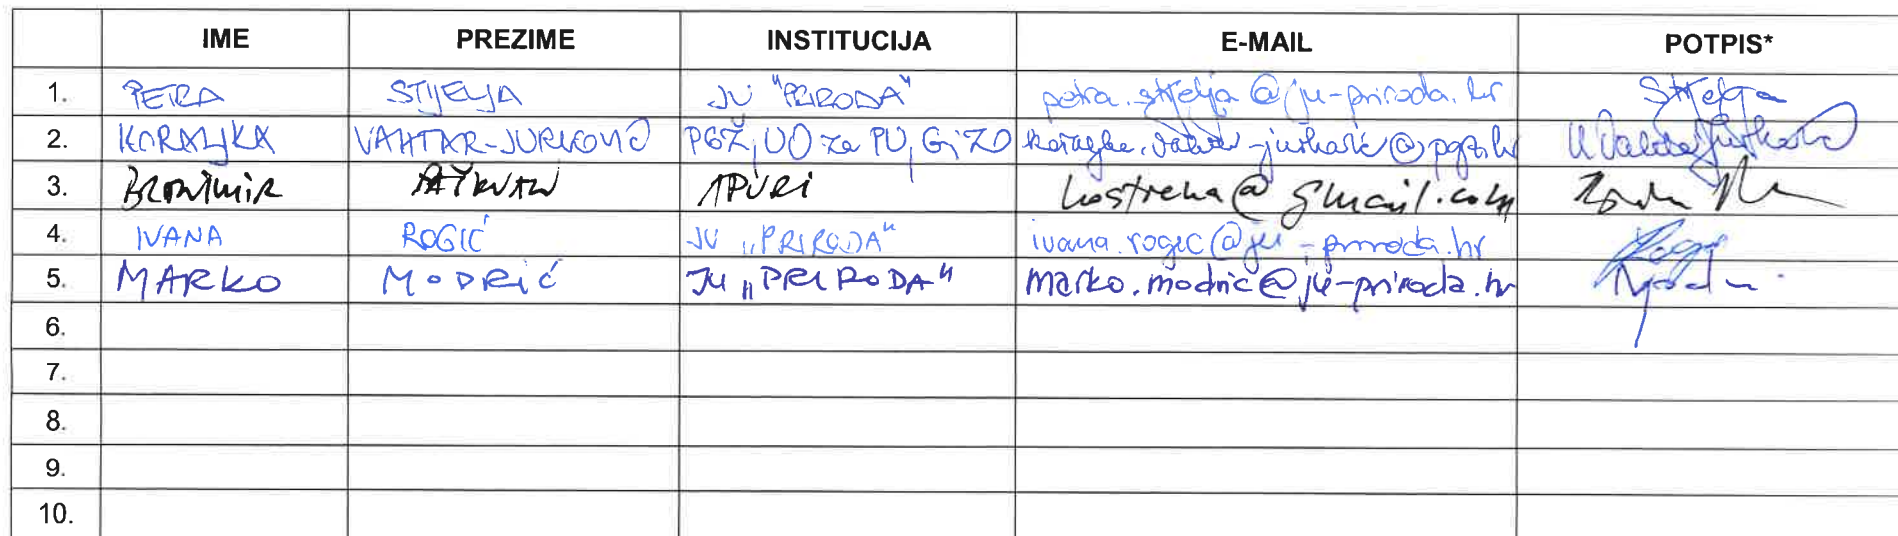 IME PREZIME INSTITUCIJA E-MAIL POTPIS*
1. PETRA STIJELJA JU "PRIRODA" petra.stijelja@ju-priroda.hr Stijelja
2. KORALJKA VAHTAR-JURKOVIĆ PGŽ, UO za PU, G i ZO koraljka.vahtar-jurkovic@pgz.hr
3. BRANIMIR APURI kostrena@gmail.com
4. IVANA ROGIĆ JU „PRIRODA" ivana.rogic@ju-priroda.hr
5. MARKO MODRIĆ JU „PRIRODA" marko.modric@ju-priroda.hr
6.
7.
8.
9.
10.